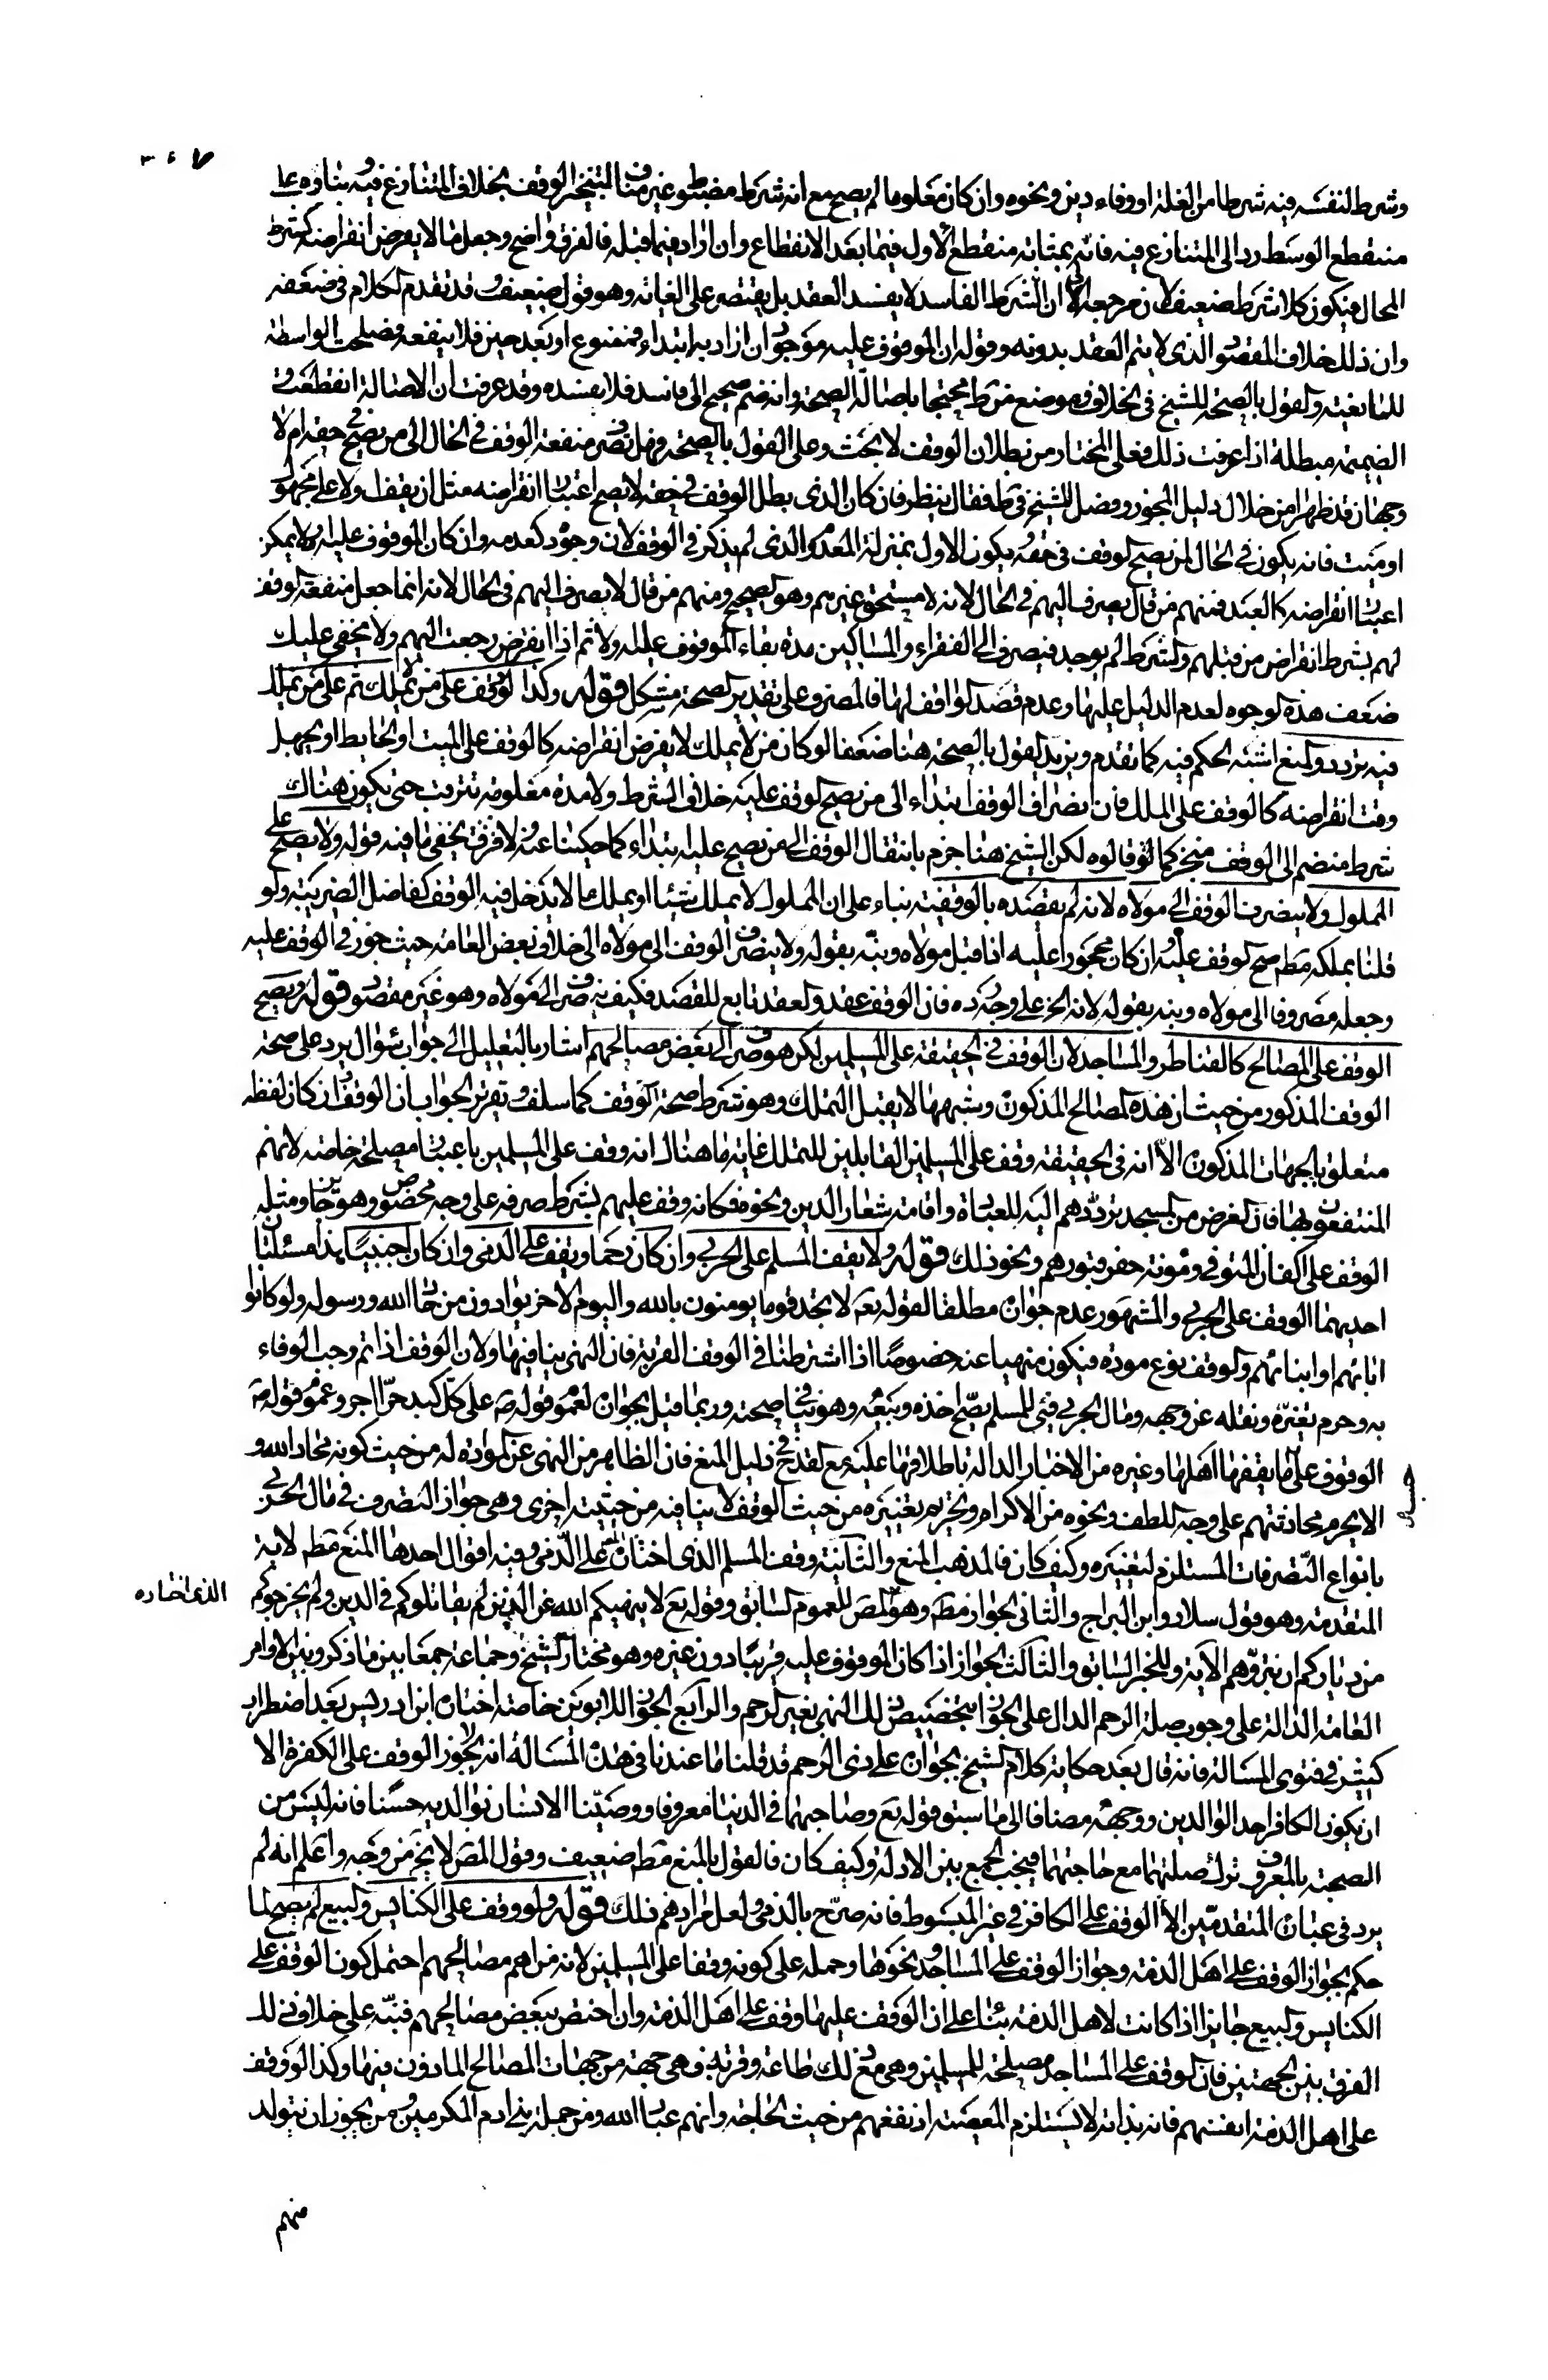 وشرط لنفسه فيه شرطا من الغلة او وفاء دين ونحوه وان كان معلوما لم يصح مع انه شرط مضبوط وغير مناف لتنجيز الوقف بخلاف المتنازع فيه وبناؤه على
منقطع الوسط رد الى المتنازع فيه فانه بمثابة منقطع الاول فيما بعد الانقطاع وان اراد فيما قبله فالفرق واضح وجعل ما لا يفرض انقراضه كشرط
المحال فيكون كلا شرط ضعيف لان مرجعه الى ان الشرط الفاسد لا يفسد العقد بل يقتصر على الغائه وهو قول ضعيف وقد تقدم الكلام في ضعفه
وان ذلك خلاف المقصود الذى لا يتم العقد بدونه وقوله ان الموقوف عليه موجود ان اراد به ابتداء فممنوع او بعد حين فلا ينفعه وضلحت الواسطة
للمانعية والقول بالصحة للشيخ في الخلاف وموضع من ط محتجا باصالة الصحة وانه ضم صحيح الى فاسد فلا يفسده وقد عرفت ان الاصالة انقطعت و
الضميمة مبطلة اذا عرفت ذلك فعلى المختار من بطلان الوقف لا بحث وعلى القول بالصحة فهل تصرف منفعة الوقف في الحال الى من يصح في حقه ام لا
وجهان قد ظهرا من خلال دليل المجوز وفصل الشيخ في ط فقال ينظر فان كان الذى بطل الوقف في حقه لا يصح اعتبار انقراضه مثل ان يقف اولا على مجهول
او ميت فانه يكون في الحال لمن يصح الوقف في حقه ويكون الاول بمنزلة المعدوم الذى لم يذكر في الوقف لان وجوده كعدمه وان كان الموقوف عليه اولا يمكن
اعتبار انقراضه كالعبد فمنهم من قال يصرف اليهم في الحال لانه لا مستحق غيرهم وهو الصحيح ومنهم من قال لا يصرف اليهم في الحال لانه انما جعل منفعة الوقف
لهم بشرط انقراض من قبلهم والشرط لم يوجد فيصرف الى الفقراء والمساكين مدة بقاء الموقوف عليه اولا ثم اذا انقرض رجعت اليهم ولا يخفى عليك
ضعف هذه الوجوه لعدم الدليل عليها وعدم قصد الواقف لها فالمصرف على تقدير الصحة مشكل قوله وكذا لو وقف على من لا يملك ثم على من يملك
فيه تردد والمنع اشبه الحكم فيه كما تقدم ويزيد القول بالصحة هنا ضعفا لو كان من لا يملك لا يفرض انقراضه كالوقف على الميت او الحايط او يجهل
وقت انقراضه كالوقف على الملك فان انصراف الوقف ابتداء الى من يصح الوقف عليه خلاف الشرط ولا مدة معلومة تترقب حتى يكون هناك
شرط منضم الى الوقف منجز كما لو قالوه لكن الشيخ هنا جزم بانتقال الوقف الى من يصح عليه ابتداء كما حكيناه عنه ولا فرق يخفى ما فيه قوله ولا يصح على
المملوك ولا ينصرف الوقف الى مولاه لانه لم يقصده بالوقفية بناء على ان المملوك لا يملك شيئا او يملك ما لا يدخل فيه الوقف كفاضل الضريبة ولو
قلنا بملكه مطم صح الوقف عليه وان كان محجورا عليه اذا قبل مولاه ونبه بقوله ولا ينصرف الوقف الى مولاه الى خلاف بعض العامة حيث جوز في الوقف عليه
وجعله مصروفا الى مولاه ونبه بقوله لانه الخ على وجه رده فان الوقف عقد والعقد تابع للقصد فكيف ينصرف الى مولاه وهو غير مقصود قوله ويصح
الوقف على المصالح كالقناطر والمساجد لان الوقف في الحقيقة على المسلمين لكن هو صرف الى بعض مصالحهم اشار بالتعليل الى جواب سؤال يرد على صحة
الوقف المذكور من حيث ان هذه المصالح المذكورة وشبهها لا يقبل التملك وهو شرط صحة الوقف كما سلف وتقرير الجواب ان الوقف وان كان لفظه
متعلق بالجهات المذكورة الا انه في الحقيقة وقف على المسلمين القابلين للتملك غاية ما هناك انه وقف على المسلمين باعتبار مصلحة خاصة لانهم
المنتفعون بها فان الغرض من المسجد ترددهم اليه للعبادة واقامة شعار الدين ونحوه فكانه وقف عليهم بشرط صرفه على وجه مخصوص وهو جايز ومثله
الوقف على اكفان الموتى ومؤنة حفر قبورهم ونحو ذلك قوله ولا يقف المسلم على الحربي وان كان رحما ويقف على الذمي وان كان اجنبيا هنا مسئلتان
احديهما الوقف على الحربي والمشهور عدم جوازه مطلقا لقوله تع لا تجد قوما يومنون بالله واليوم الاخر يوادون من حاد الله ورسوله ولو كانوا
اباءهم او ابناءهم والوقف نوع مودة فيكون منهيا عنه خصوصا اذا اشترطنا في الوقف القربة فان النهي ينافيها ولان الوقف اذا تم وجب الوفاء
به وحرم تغيره ونقله عن وجهه ومال الحربي فيئ للمسلم يصح اخذه وبيعه وهو ينافي صحته وربما قيل بجوازه لعموم قوله ص على كل كبد حرا اجر وعموم قوله ص
الوقوف على ما يقفها اهلها وغيره من الاخبار الدالة باطلاقها عليه مع القدح في دليل المنع فان الظاهر من النهي عن الموادة له من حيث كونه محاد الله و
الا يحرم محادثتهم على وجه اللطف ونحوه من الاكرام وتحريم تغييره من حيث الوقف لا ينافيه من حيثية اخرى وهي جواز التصرف في مال الحربي
بانواع التصرفات المستلزم لتغييره وكيف كان فالمذهب المنع والثانية وقف المسلم الذى اختاره المص على الذمي وفيه اقوال احدها المنع مطم للاية
الذى اختاره
المتقدمة وهو قول سلار وابن البراج والثاني الجواز مطم وهو المص للعموم السابق وقوله تع لا ينهيكم الله عن الذين لم يقاتلوكم في الدين ولم يخرجوكم
من دياركم ان تبروهم الاية وللخبر السابق والثالث الجواز اذا كان الموقوف عليه قريبا دون غيره وهو مختار الشيخ وجماعة جمعا بين ما ذكر وبين الاوامر
العامة الدالة على وجوب صلة الرحم الدال على الجواز بتخصيص ذلك النهي بغير الرحم والرابع الجواز للابوين خاصة اختاره ابن ادريس بعد اضطراب
كثير في فتوى المسالة فانه قال بعد حكاية كلام الشيخ بجوازه على ذى الرحم قد قلنا ما عندنا في هذه المسالة انه لا يجوز الوقف على الكفرة الا
ان يكون الكافر احد الوالدين ووجهه مضافا الى ما سبق قوله تع وصاحبهما في الدنيا معروفا ووصينا الانسان بوالديه حسنا فانه ليس من
الصحبة بالمعروف ترك صلتهما مع حاجتهما فيجب الجمع بين الادلة وكيف كان فالقول بالمنع مطم ضعيف وقول المص لا يخ من وجه واعلم انه لم
يرد في عبارة المتقدمين الا الوقف على الكافر في غير المبسوط فانه صرح بالذمي ولعل مرادهم ذلك قوله ولو وقف على الكنايس والبيع لم يصح لما
حكم بجواز الوقف على اهل الذمة وجواز الوقف على المساجد ونحوها وحمله على كونه وقفا على المسلمين لانه من اهم مصالحهم احتمل كون الوقف على
الكنايس والبيع جايزا اذا كانت لاهل الذمة بناء على ان الوقف عليها وقف على اهل الذمة وان اختص ببعض مصالحهم فنبه على خلاف ذلك
الفرق بين الجهتين فان الوقف على المساجد مصلحة للمسلمين وهي مع ذلك طاعة وقربة فهي جهة من جهات المصالح الماذون فيها وكذا الوقف
على اهل الذمة انفسهم فانه بذاته لا يستلزم المعصية اذ نفعهم من حيث الحاجة وانهم عباد الله ومن جملة بني ادم المكرمين ومن يجوز ان يتولد
منهم